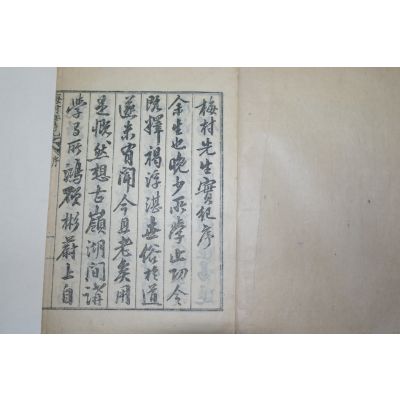 梅村先生實紀序
余生也晚少不學此仍今
既釋褐浮湛世俗於道
遂未有聞今且老矣用
是慨然想古嶺湖間講
學之所鴻碩彬蔚上自